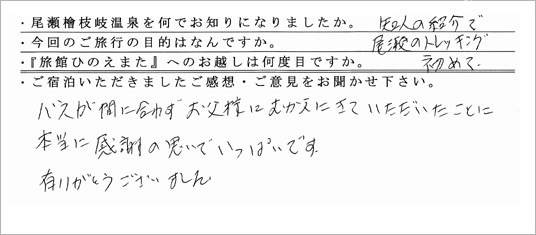 ・尾瀬檜枝岐温泉を何でお知りになりましたか。 知人の紹介で
・今回のご旅行の目的はなんですか。 尾瀬のトレッキング
・『旅館ひのえまた』へのお越しは何度目ですか。 初めて
・ご宿泊いただきましたご感想・ご意見をお聞かせ下さい。
バスが間に合わずお父様にむかえにきていただいたことに
本当に感謝の思いでいっぱいです
有りがとうございました